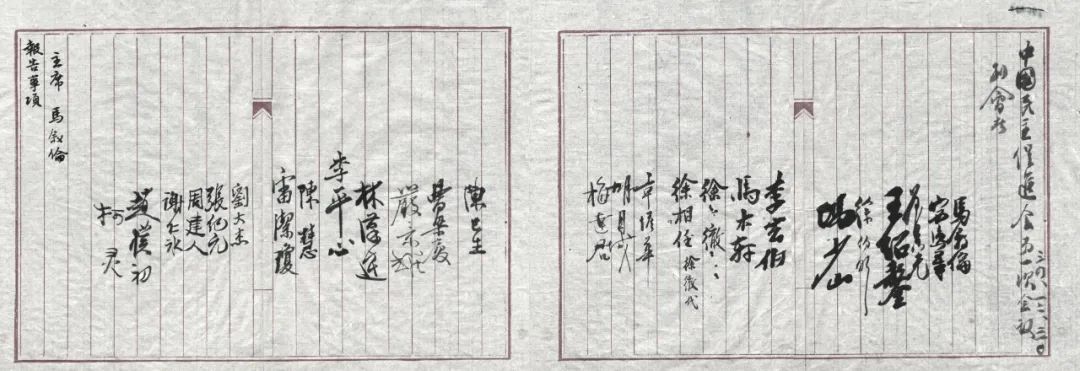 中國民主促進會第一次會議
三四、一二、三〇
到會者
馬叙倫
宓逸羣
王紹鏊
徐伯昕
馮少山
李玄伯
馬木軒
徐徹
徐相任 徐徹代
章蟾華
梅達君
陳巳生
曹梁廈
嚴景耀
林漢達
李平心
陳慧
雷潔瓊
劉大杰
張紀元
周建人
謝仁冰
趙樸初
柯灵
主席 馬叙倫
報告事項